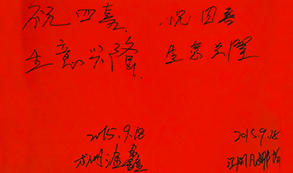 祝四喜 祝四喜
生意兴隆 生意兴隆
2015.9.18 2015.9.18